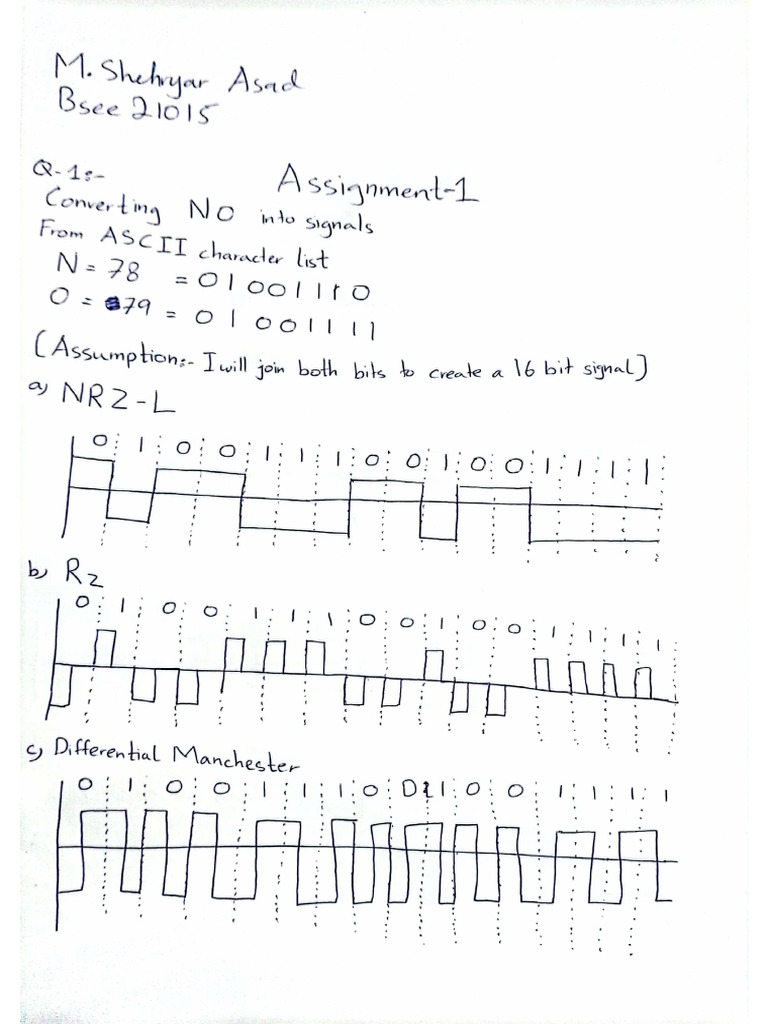 M. Shehryar Asad
Bsee 21015
Assignment-1
Q-1:-
Converting NO into signals
From ASCII character list
N = 78 = 01001110
O = 79 = 01001111
(Assumption:- I will join both bits to create a 16 bit signal)
a) NRZ-L
0 1 0 0 1 1 1 0 0 1 0 0 1 1 1 1
b) RZ
0 1 0 0 1 1 1 0 0 1 0 0 1 1 1 1
c) Differential Manchester
0 1 0 0 1 1 1 0 0 1 0 0 1 1 1 1